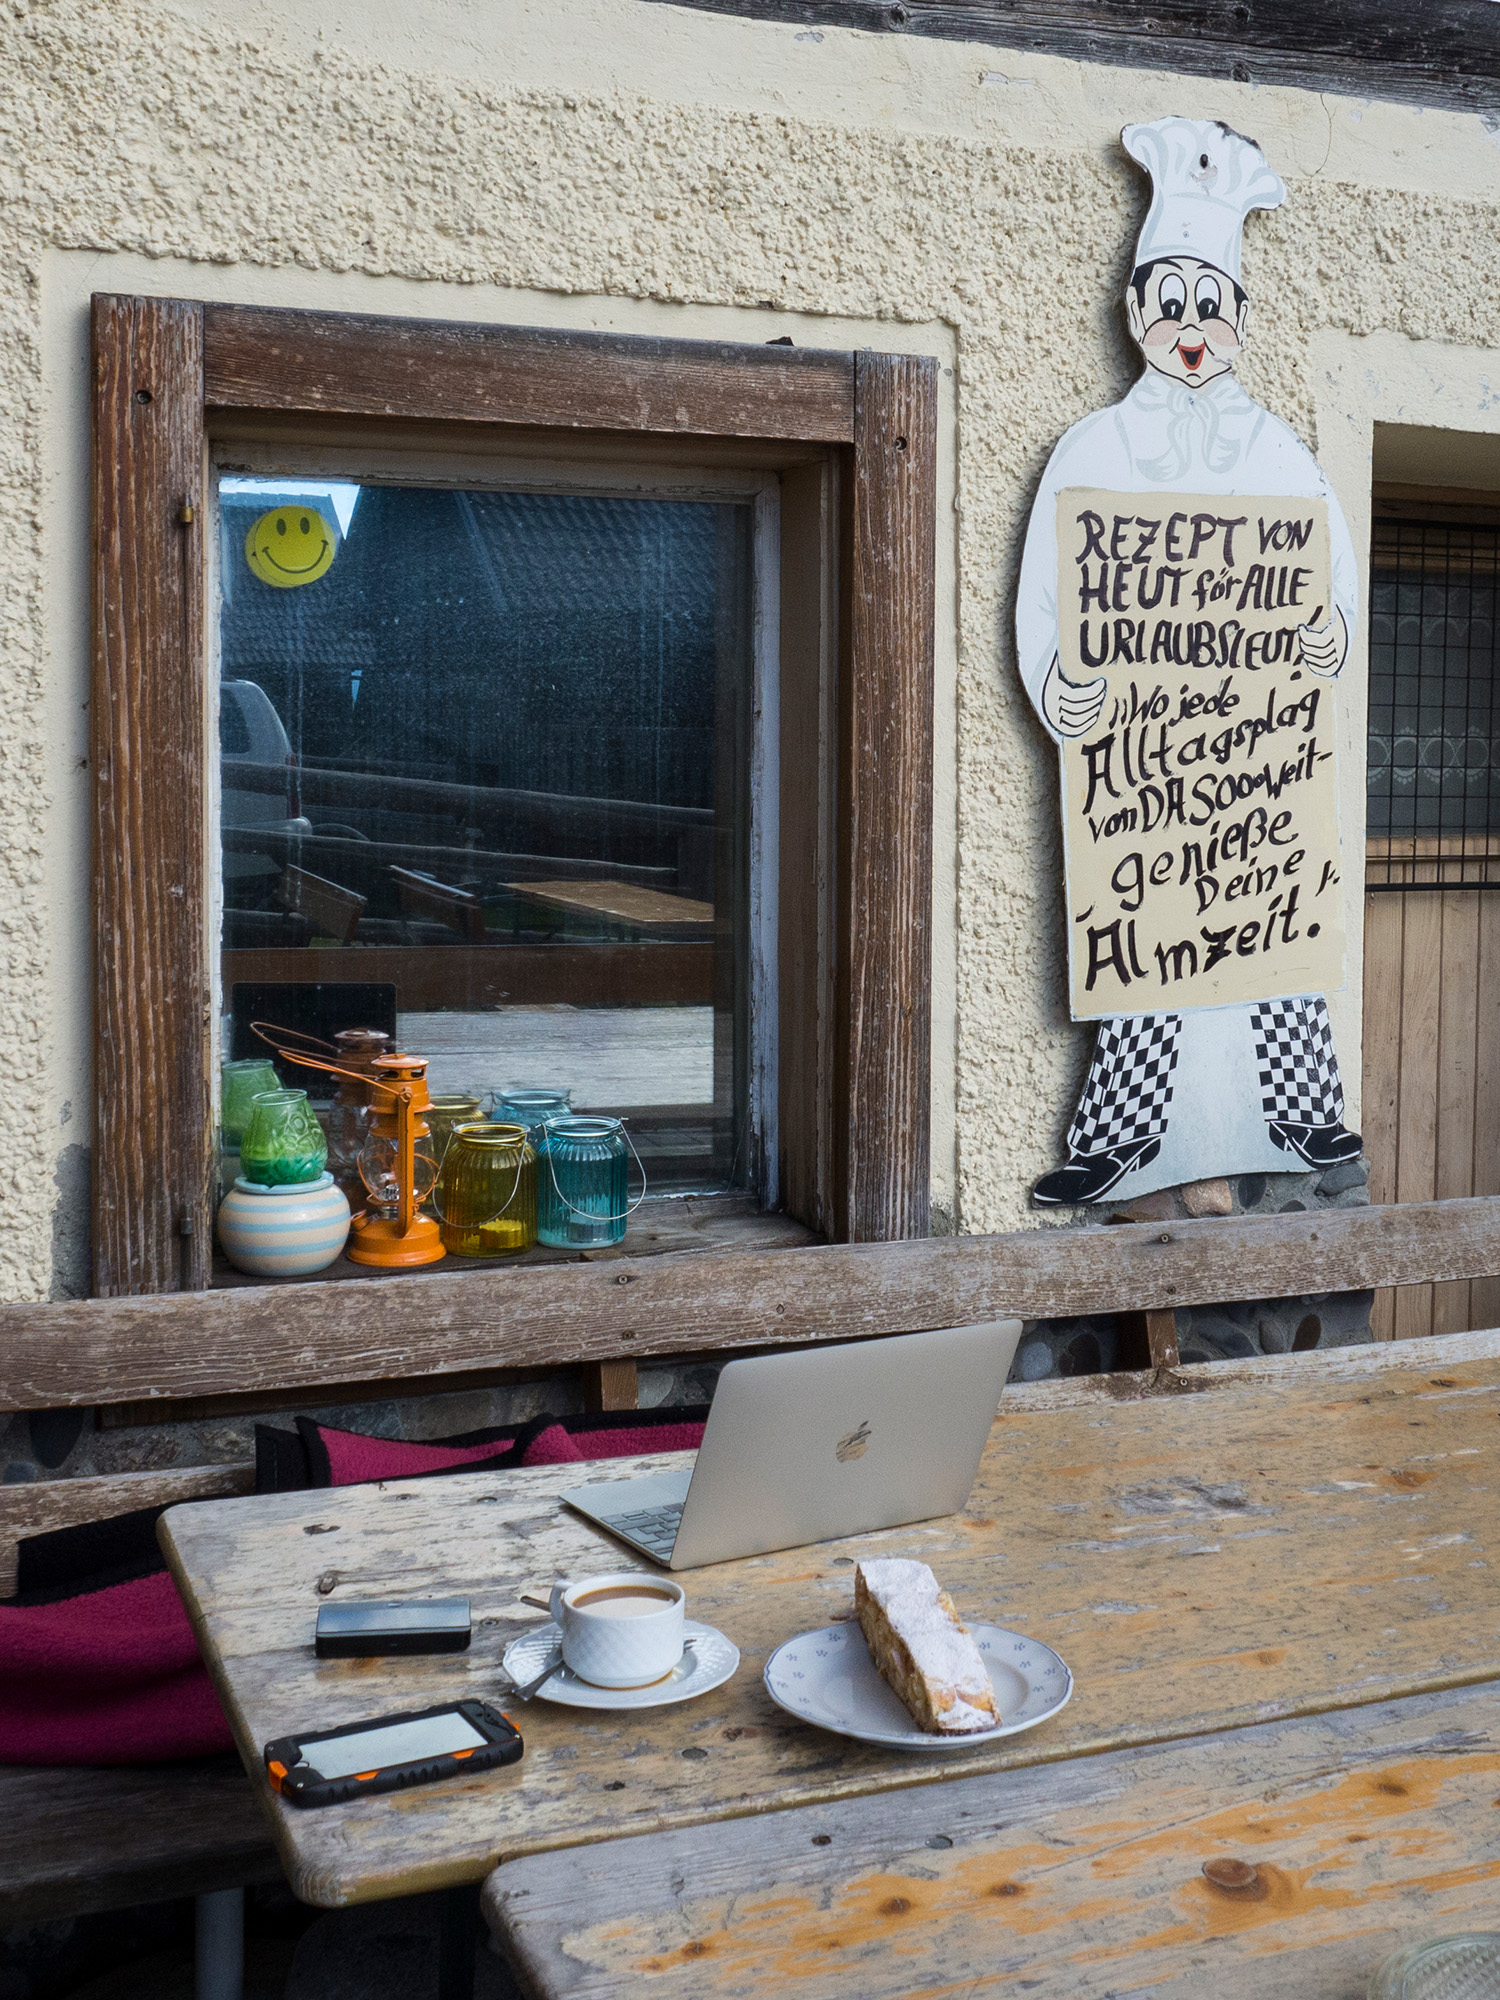 REZEPT VON
HEUT für ALLE
URLAUBSLEUT!
"Wo jede
Alltagsplag
von DA SOOO weit-
genieße
Deine
Almzeit.